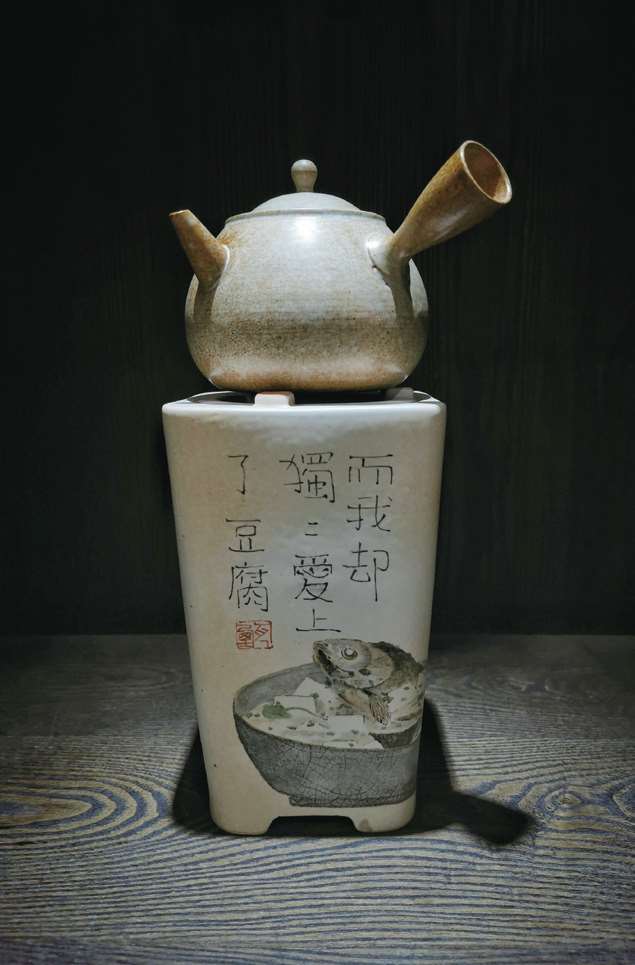 而我却
獨〻愛上
了豆腐